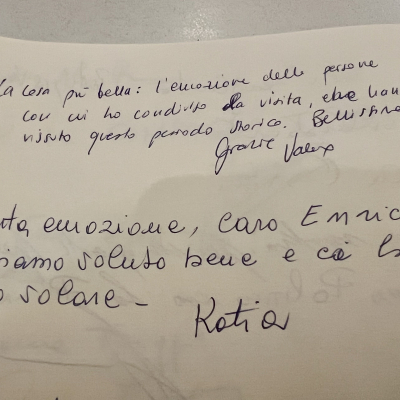 La cosa più bella: l'emozione delle persone
con cui ho condiviso la visita, che han
vissuto questo periodo storico. Bellissima
Grazie
ta emozione, caro Enric
iamo voluto bene e ci
o solare -
Katia